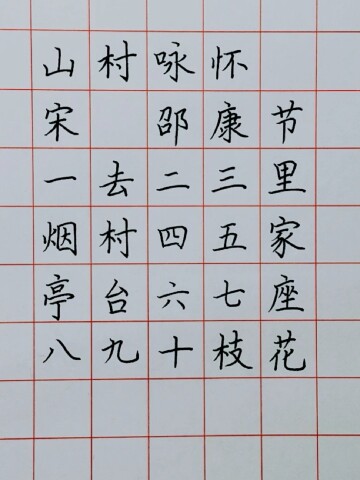 山村咏怀
宋 邵康节
一去二三里
烟村四五家
亭台六七座
八九十枝花